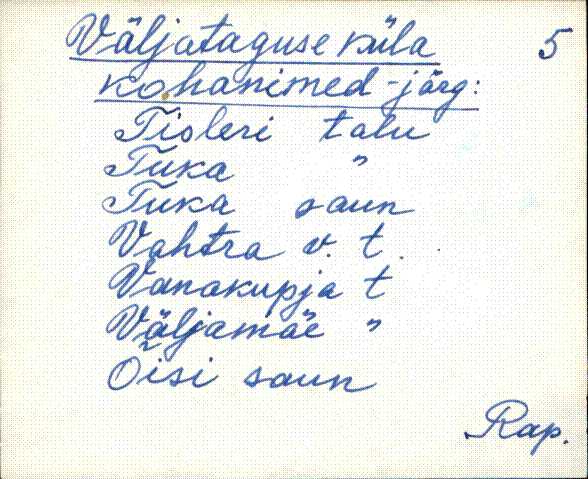 Väljataguse küla 5
kohanimed - järg:
Tisleri talu
Tuka "
Tuka saun
Vahtra v. t.
Vanakupja t
Väljamäe "
Õisi saun
Rap.